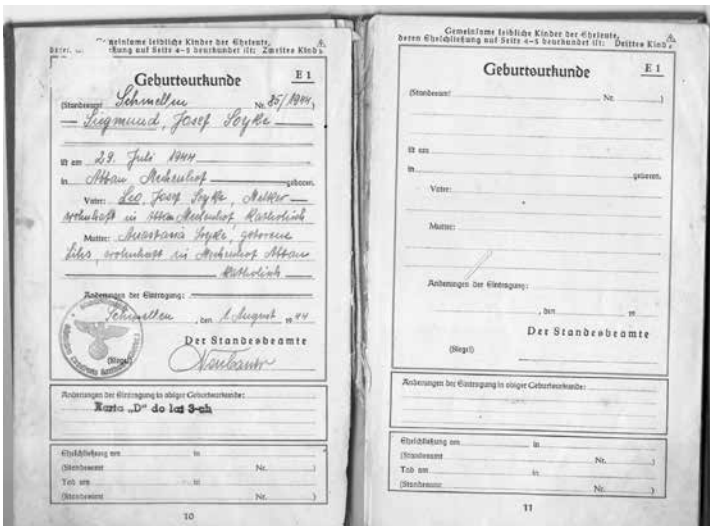 Gemeinsame leibliche Kinder der Eheleute,
deren Eheschließung auf Seite 4–5 beurkundet ist: Zweites Kind
Geburtsurkunde E 1
(Standesamt Schmellen Nr. 85/1944)
Siegmund, Josef Soyke
ist am 29. Juli 1944
in Abbau geboren.
Vater: Leo, Josef Soyke, Melker
wohnhaft in Katholisch
Mutter: Anastasia Soyke, geborene
wohnhaft in Abbau
Katholisch
Änderungen der Eintragung:
Schmellen, den 1. August 1944
Der Standesbeamte
(Siegel)
Änderungen der Eintragung in obiger Geburtsurkunde:
Karta „D" do lat 3-ch
Eheschließung am in
(Standesamt Nr. )
Tod am in
(Standesamt Nr. )
10
Gemeinsame leibliche Kinder der Eheleute,
deren Eheschließung auf Seite 4–5 beurkundet ist: Drittes Kind
Geburtsurkunde E 1
(Standesamt Nr. )
ist am
in geboren.
Vater:
Mutter:
Änderungen der Eintragung:
, den 19
Der Standesbeamte
(Siegel)
Änderungen der Eintragung in obiger Geburtsurkunde:
Eheschließung am in
(Standesamt Nr. )
Tod am in
(Standesamt Nr. )
11